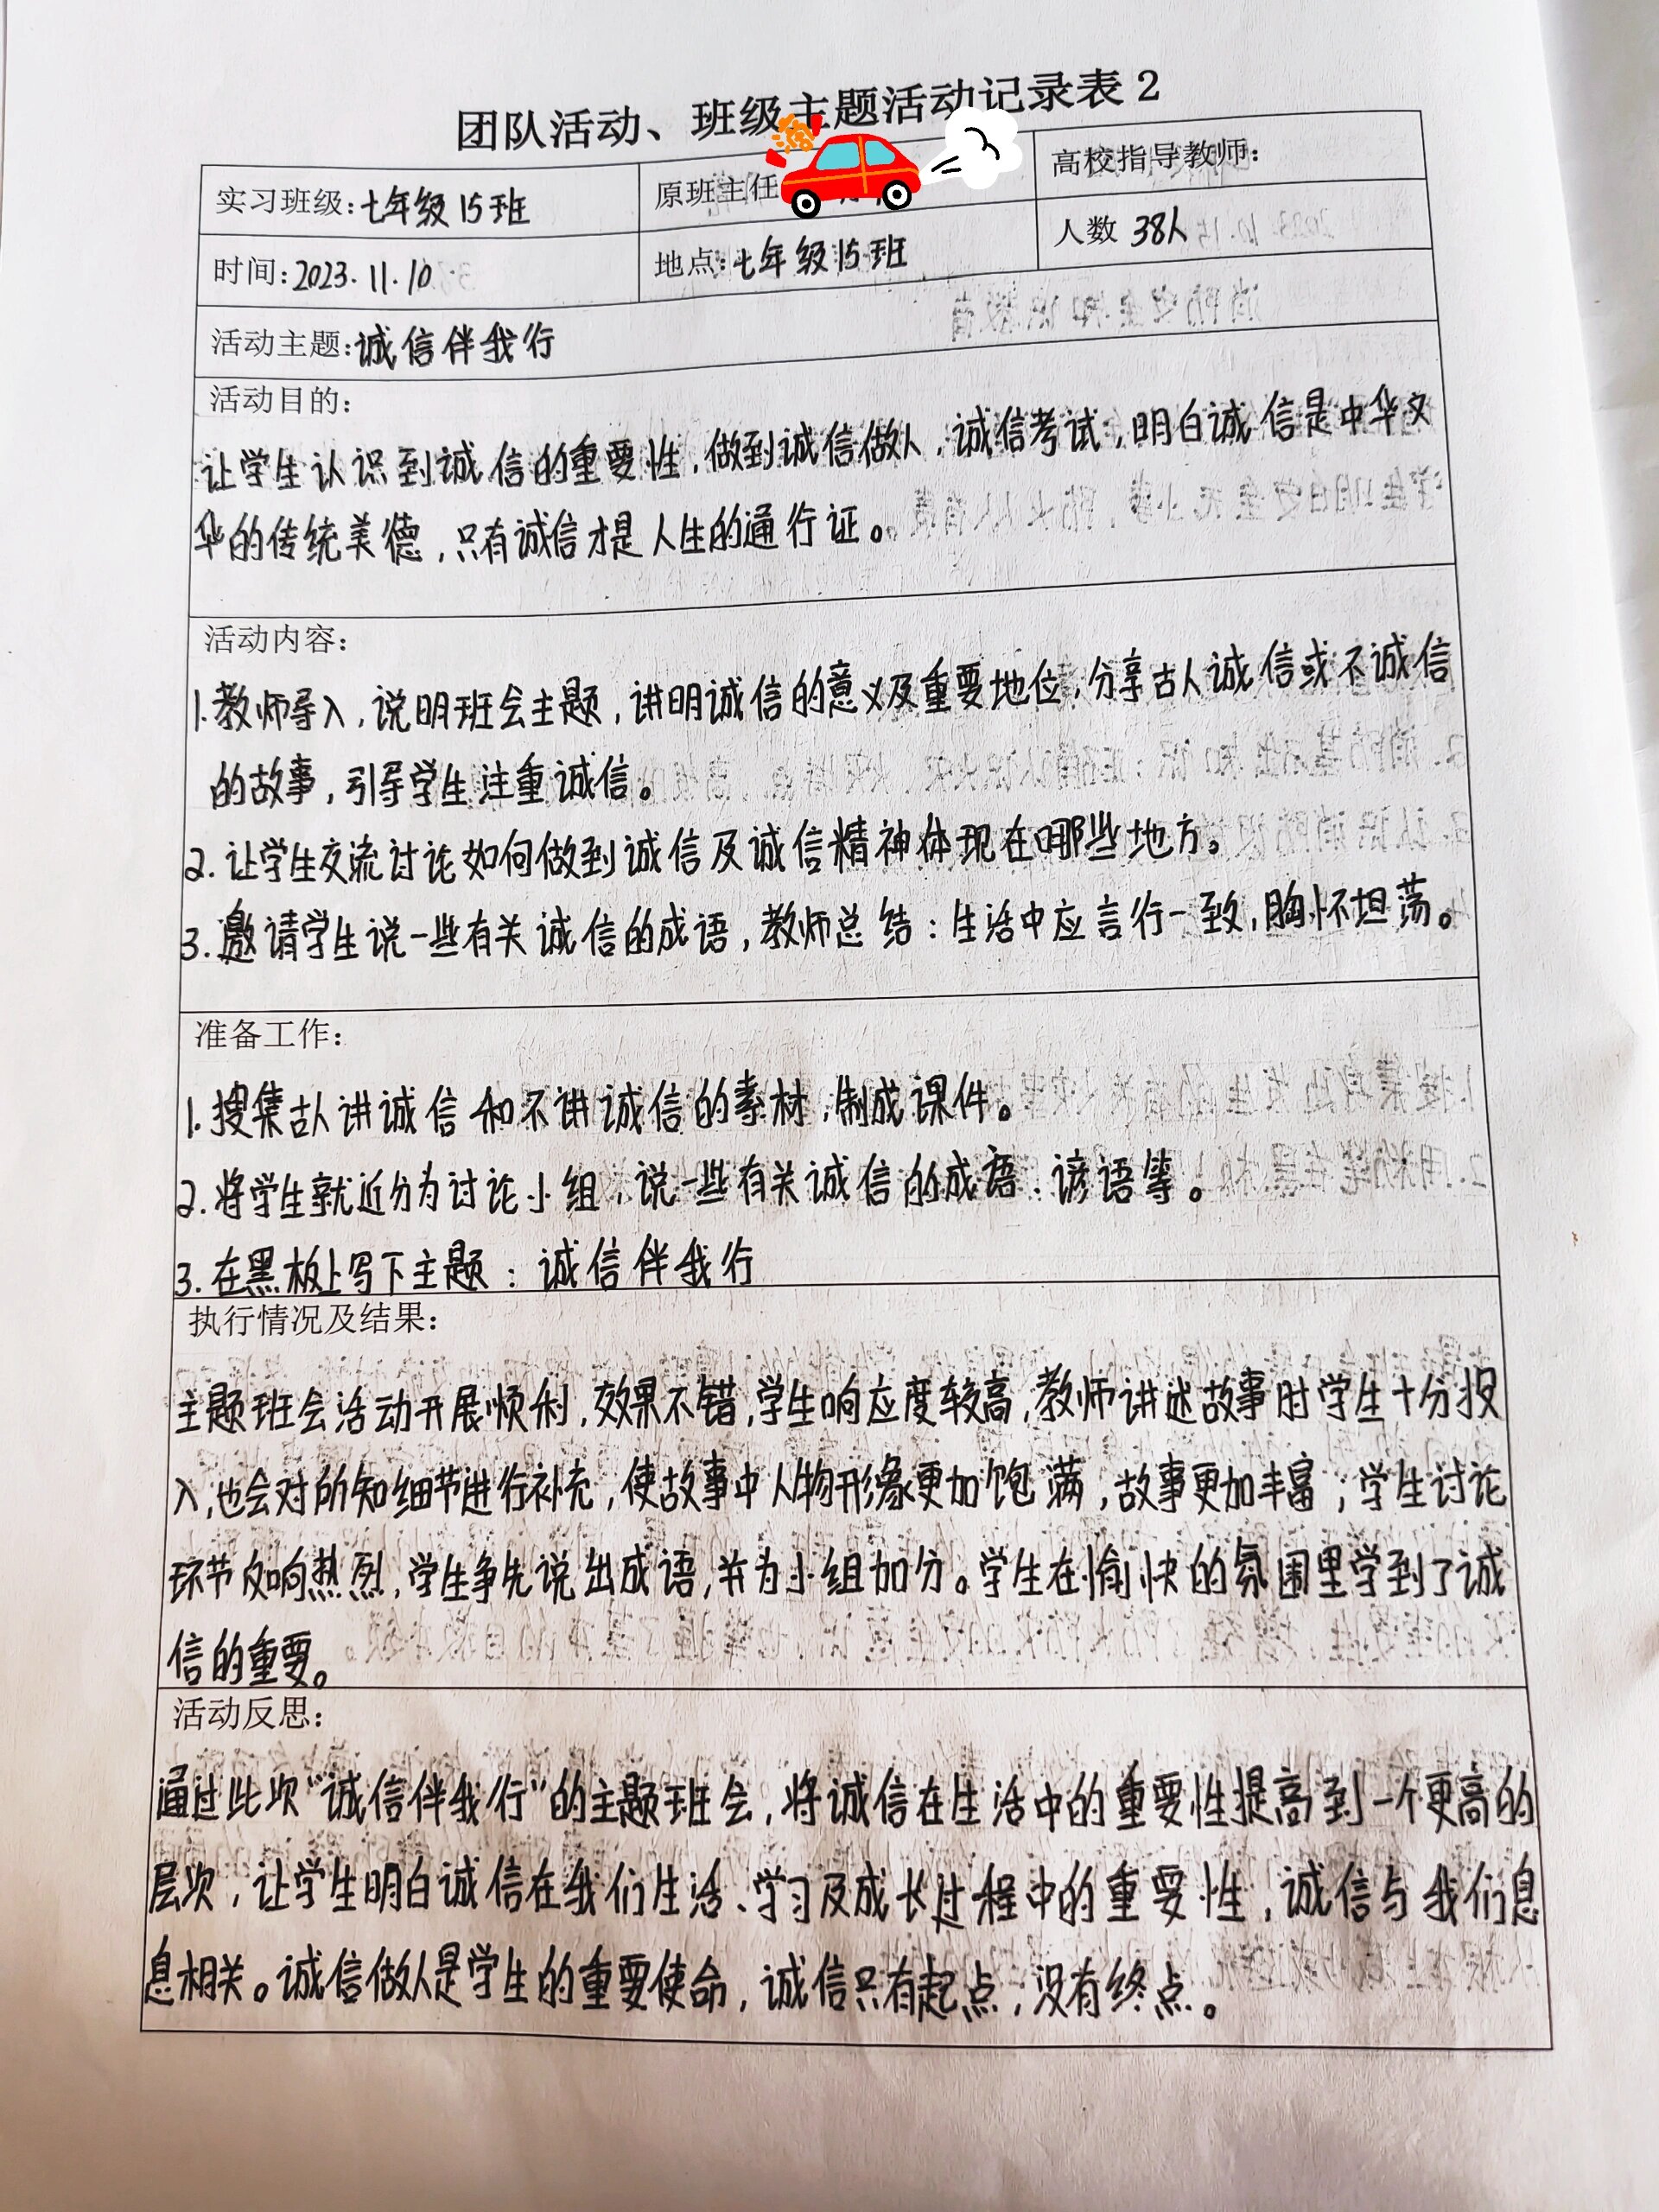 团队活动、班级主题活动记录表2
实习班级:七年级15班
原班主任
高校指导教师:
时间:2023.11.10
地点:七年级15班
人数 38人
活动主题:诚信伴我行
活动目的:
让学生认识到诚信的重要性,做到诚信做人,诚信考试,明白诚信是中华文
华的传统美德,只有诚信才是人生的通行证。
活动内容:
1.教师导入,说明班会主题,讲明诚信的意义及重要地位,分享古人诚信或不诚信
的故事,引导学生注重诚信。
2.让学生交流讨论如何做到诚信及诚信精神体现在哪些地方。
3.邀请学生说一些有关诚信的成语,教师总结:生活中应言行一致,胸怀坦荡。
准备工作:
1.搜集古人讲诚信和不讲诚信的素材,制成课件。
2.将学生就近分为讨论小组,说一些有关诚信的成语、谚语等。
3.在黑板上写下主题:诚信伴我行
执行情况及结果:
主题班会活动开展顺利,效果不错,学生响应度较高,教师讲述故事时学生十分投
入,也会对所知细节进行补充,使故事中人物形象更加饱满,故事更加丰富;学生讨论
环节反响热烈,学生争先说出成语,并为小组加分。学生在愉快的氛围里学到了诚
信的重要。
活动反思:
通过此次"诚信伴我行"的主题班会,将诚信在生活中的重要性提高到一个更高的
层次,让学生明白诚信在我们生活、学习及成长过程中的重要性,诚信与我们息
息相关。诚信做人是学生的重要使命,诚信只有起点,没有终点。